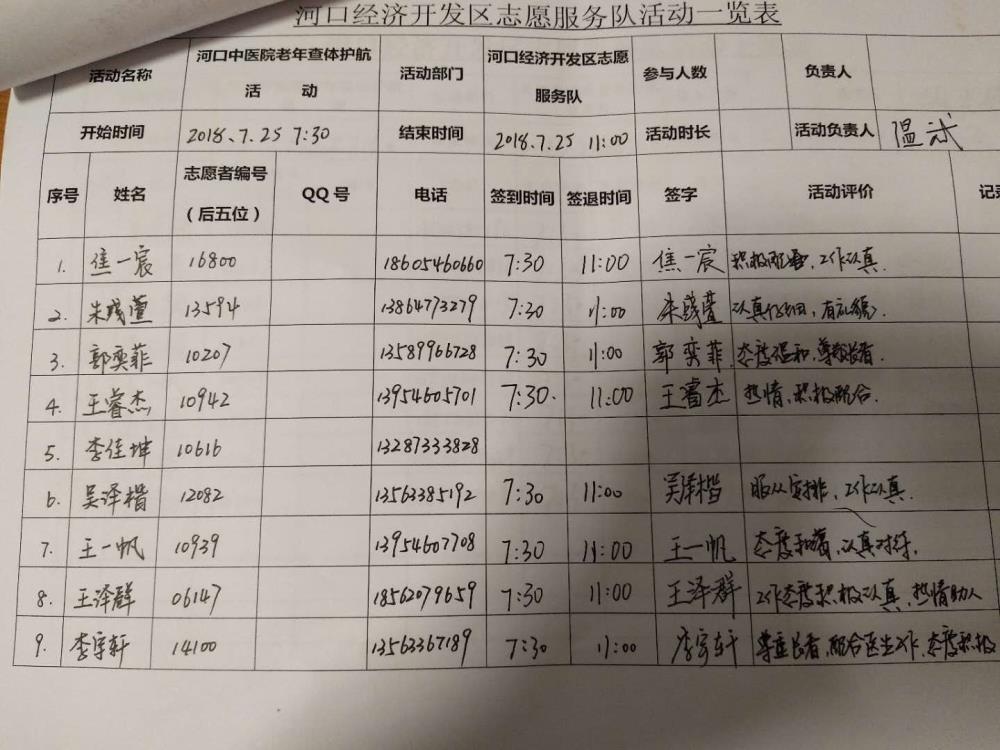 河口经济开发区志愿服务队活动一览表
活动名称 河口中医院老年查体护航活 动 活动部门 河口经济开发区志愿服务队 参与人数 负责人
开始时间 2018、7.25 7:30 结束时间 2018.7.25 11:00 活动时长 活动负责人 温斌
序号 姓名 志愿者编号（后五位） QQ 号 电话 签到时间 签退时间 签字 活动评价 记录
1. 焦一宸 16800 18605460660 7:30 11:00 焦一宸 积极配合,工作认真.
2. 朱彧萱 13594 13864773279 7:30 11:00 朱彧萱 认真仔细,有礼貌.
3. 郭奕菲 10207 13589966728 7:30 11:00 郭奕菲 态度温和,尊敬长者.
4. 王睿杰 10942 13954605701 7:30. 11:00 王睿杰 热情、积极配合.
5. 李佳坤 10616 13287333828
6. 吴泽楷 12082 13563385192 7:30 11:00 吴泽楷 服从安排,工作认真.
7. 王一帆 10939 13954607708 7:30 11:00 王一帆 态度和蔼,认真对待.
8. 王泽群 06147 18562079659 7:30 11:00 王泽群 工作态度积极认真,热情助人
9. 李宇轩 14100 13563367189 7:30 11:00 李宇轩 尊重长者,配合医生工作,态度积极